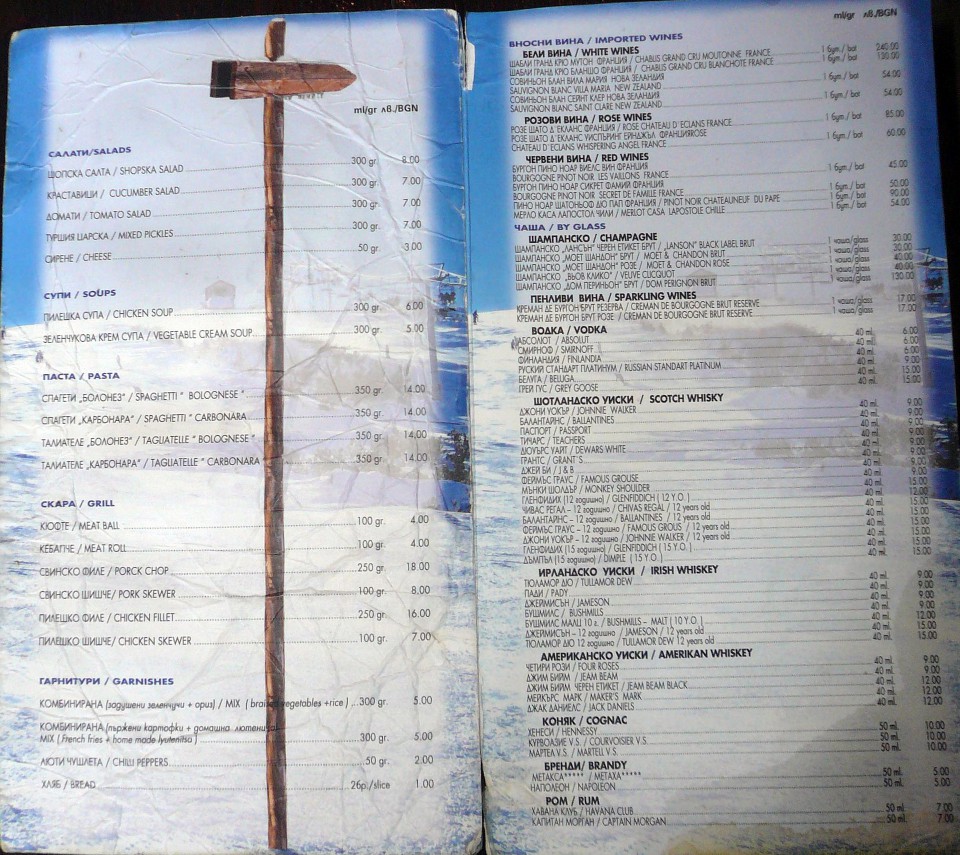 ml/gr лв./BGN
САЛАТИ/SALADS
ШОПСКА САЛТА / SHOPSKA SALAD 300 gr. 8.00
КРАСТАВИЦИ / CUCUMBER SALAD 300 gr. 7.00
ДОМАТИ / TOMATO SALAD 300 gr. 7.00
ТУРШИЯ ЦАРСКА / MIXED PICKLES 300 gr. 7.00
СИРЕНЕ / CHEESE 50 gr. 3.00
СУПИ / SOUPS
ПИЛЕШКА СУПА / CHICKEN SOUP 300 gr. 6.00
ЗЕЛЕНЧУКОВА КРЕМ СУПА / VEGETABLE CREAM SOUP 300 gr. 5.00
ПАСТА / PASTA
СПАГЕТИ „БОЛОНЕЗ” / SPAGHETTI “ BOLOGNESE ” 350 gr. 14.00
СПАГЕТИ „КАРБОНАРА” / SPAGHETTI “ CARBONARA 350 gr. 14.00
ТАЛИАТЕЛЕ „БОЛОНЕЗ” / TAGLIATELLE “ BOLOGNESE “ 350 gr. 14.00
ТАЛИАТЕЛЕ „КАРБОНАРА” / TAGLIATELLE “ CARBONARA “ 350 gr. 14.00
СКАРА / GRILL
КЮФТЕ / MEAT BALL 100 gr. 4.00
КЕБАПЧЕ / MEAT ROLL 100 gr. 4.00
СВИНСКО ФИЛЕ / PORCK CHOP 250 gr. 18.00
СВИНСКО ШИШЧЕ / PORK SKEWER 100 gr. 8.00
ПИЛЕШКО ФИЛЕ / CHICKEN FILLET 250 gr. 16.00
ПИЛЕШКО ШИШЧЕ / CHICKEN SKEWER 100 gr. 7.00
ГАРНИТУРИ / GARNISHES
КОМБИНИРАНА (задушени зеленчуци + ориз) / MIX ( braised vegetables +rice ) 300 gr. 5.00
КОМБИНИРАНА (пържени картофки + домашна лютеница)
MIX ( French fries + home made lyutenitsa ) 300 gr. 5.00
ЛЮТИ ЧУШЛЕТА / CHILLI PEPPERS 50 gr. 2.00
ХЛЯБ / BREAD 2бр./slice 1.00
ml/gr лв./BGN
ВНОСНИ ВИНА / IMPORTED WINES
БЕЛИ ВИНА / WHITE WINES
ШАБЛИ ГРАНД КРЮ МУТОН ФРАНЦИЯ / CHABLIS GRAND CRU MOUTONNE FRANCE 1 бут./ bot 240.00
ШАБЛИ ГРАНД КРЮ БЛАНШО ФРАНЦИЯ / CHABLIS GRAND CRU BLANCHOTE FRANCE 1 бут./ bot 130.00
СОВИНЬОН БЛАН ВИЛА МАРИЯ НОВА ЗЕЛАНДИЯ
SAUVIGNON BLANC VILLA MARIA NEW ZEALAND 1 бут./ bot 54.00
СОВИНЬОН БЛАН СЕИНТ КЛЕР НОВА ЗЕЛАНДИЯ
SAUVIGNON BLANC SAINT CLARE NEW ZEALAND 1 бут./ bot 54.00
РОЗОВИ ВИНА / ROSE WINES
РОЗЕ ШАТО Д`ЕКЛАНС ФРАНЦИЯ / ROSE CHATEAU D`ECLANS FRANCE 1 бут./ bot 85.00
РОЗЕ ШАТО Д`ЕКЛАНС УИСПЪРИНГ ЕЙНДЖЪЛ ФРАНЦИЯROSE
CHATEAU D`ECLANS WHISPERING ANGEL FRANCE 1 бут./ bot 60.00
ЧЕРВЕНИ ВИНА / RED WINES
БУРГОН ПИНО НОАР ВИЕЛС ВИН ФРАНЦИЯ
BOURGOGNE PINOT NOIR LES VAILLONS FRANCE 1 бут./ bot 45.00
БУРГОН ПИНО НОАР СИКРЕТ ФАМИЛИ ФРАНЦИЯ
BOURGOGNE PINOT NOIR SECRET DE FAMILLE FRANCE 1 бут./ bot 50.00
ПИНО НОАР ШАТОНЬОФ ДЮ ПАП ФРАНЦИЯ / PINOT NOIR CHATEAUNEUF DU PAPE 1 бут./ bot 90.00
МЕРЛО КАСА ЛАПОСТОЛ ЧИЛИ / MERLOT CASA LAPOSTOLE CHILLE 1 бут./ bot 54.00
ЧАША / BY GLASS
ШАМПАНСКО / CHAMPAGNE
ШАМПАНСКО „ЛАНСЪН” ЧЕРЕН ЕТИКЕТ БРУТ / „LANSON” BLACK LABEL BRUT 1 чаша/glass 30.00
ШАМПАНСКО „МОЕТ ШАНДОН” БРУТ / MOET & CHANDON BRUT 1 чаша/glass 30.00
ШАМПАНСКО „МОЕТ ШАНДОН” РОЗЕ / MOET & CHANDON ROSE 1 чаша/glass 40.00
ШАМПАНСКО „ВЬОВ КЛИКО” / VEUVE CLICQUOT 1 чаша/glass 40.00
ШАМПАНСКО „ДОМ ПЕРИНЬОН” БРУТ / DOM PERIGNON BRUT 1 чаша/glass 130.00
ПЕНЛИВИ ВИНА / SPARKLING WINES
КРЕМАН ДЕ БУРГОН БРУТ РЕЗЕРВА / CREMAN DE BOURGOGNE BRUT RESERVE 1 чаша/glass 17.00
КРЕМАН ДЕ БУРГОН БРУТ РОЗЕ / CREMAN DE BOURGOGNE BRUT RESERVE 1 чаша/glass 17.00
ВОДКА / VODKA
АБСОЛЮТ / ABSOLUT 40 ml. 6.00
СМИРНОФ / SMIRNOFF 40 ml. 6.00
ФИНЛАНДИЯ / FINLANDIA 40 ml. 6.00
РУСКИЙ СТАНДАРТ ПЛАТИНУМ / RUSSIAN STANDART PLATINUM 40 ml. 9.00
БЕЛУГА / BELUGA 40 ml. 15.00
ГРЕЙ ГУС / GREY GOOSE 40 ml. 15.00
ШОТЛАНДСКО УИСКИ / SCOTCH WHISKY
ДЖОНИ УОКЪР / JOHNNIE WALKER 40 ml. 9.00
БАЛАНТАЙНС / BALLANTINES 40 ml. 9.00
ПАСПОРТ / PASSPORT 40 ml. 9.00
ТИЧАРС / TEACHERS 40 ml. 9.00
ДЮУЪРС УАЙТ / DEWARS WHITE 40 ml. 9.00
ГРАНТС / GRANT`S 40 ml. 9.00
ДЖЕЙ БИ / J & B 40 ml. 9.00
ФЕЙМЪС ГРАУС / FAMOUS GROUSE 40 ml. 9.00
МЪНКИ ШОЛДЪР / MONKEY SHOULDER 40 ml. 15.00
ГЛЕНФИДИХ (12 годишно) / GLENFIDDICH ( 12 Y.O. ) 40 ml. 12.00
ЧИВАС РЕГАЛ – 12 годишно / CHIVAS REGAL / 12 years old 40 ml. 15.00
БАЛАНТАЙНС – 12 годишно / BALLANTINES / 12 years old 40 ml. 15.00
ФЕЙМЪС ГРАУС – 12 годишно / FAMOUS GROUS / 12 years old 40 ml. 15.00
ДЖОНИ УОКЪР – 12 годишно / JOHNNIE WALKER / 12 years old 40 ml. 15.00
ГЛЕНФИДИХ (15 годишно) / GLENFIDDICH ( 15 Y.O. ) 40 ml. 15.00
ДЪМПЪЛ (15 годишно) / DIMPLE ( 15 Y.O. ) 40 ml. 15.00
ИРЛАНДСКО УИСКИ / IRISH WHISKEY
ТЮЛАМОР ДЮ / TULLAMOR DEW 40 ml. 9.00
ПАДИ / PADY 40 ml. 9.00
ДЖЕЙМИСЪН / JAMESON 40 ml. 9.00
БУШМИЛС / BUSHMILLS 40 ml. 9.00
БУШМИЛС МАЛЦ 10 г. / BUSHMILLS – MALT ( 10 Y.O. ) 40 ml. 12.00
ДЖЕЙМИСЪН – 12 годишно / JAMESON / 12 years old 40 ml. 15.00
ТЮЛАМОР ДЮ 12 годишно / TULLAMOR DEW 12 years old 40 ml. 15.00
АМЕРИКАНСКО УИСКИ / AMERIKAN WHISKEY
ЧЕТИРИ РОЗИ / FOUR ROSES 40 ml. 9.00
ДЖИМ БИЙМ / JEAM BEAM 40 ml. 9.00
ДЖИМ БИЙМ ЧЕРЕН ЕТИКЕТ / JEAM BEAM BLACK 40 ml. 12.00
МЕЙКЪРС МАРК / MAKER`S MARK 40 ml. 12.00
ДЖАК ДАНИЕЛС / JACK DANIELS 40 ml. 12.00
КОНЯК / COGNAC
ХЕНЕСИ / HENNESSY 50 ml. 10.00
КУРВОАЗИЕ V.S. / COURVOISIER V.S. 50 ml. 10.00
МАРТЕЛ V.S. / MARTELL V.S. 50 ml. 10.00
БРЕНДИ/ BRANDY
МЕТАКСА***** / METAXA***** 50 ml. 5.00
НАПОЛЕОН / NAPOLEON 50 ml. 5.00
РОМ / RUM
ХАВАНА КЛУБ / HAVANA CLUB 50 ml. 7.00
КАПИТАН МОРГАН / CAPTAIN MORGAN 50 ml. 7.00